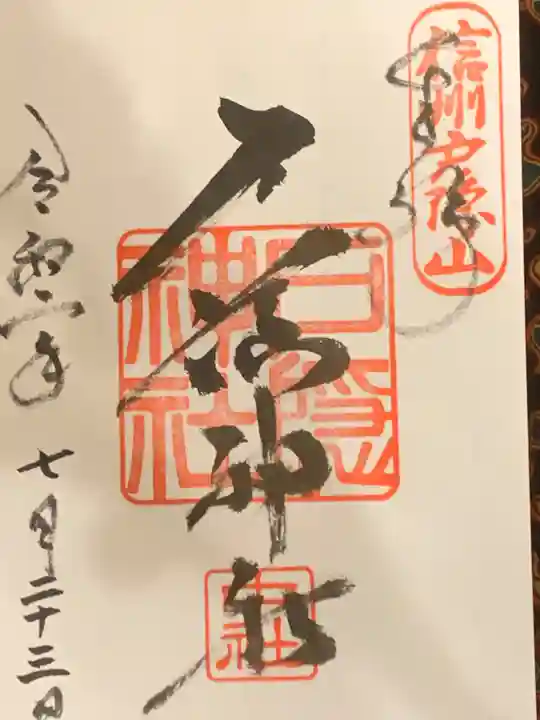 奉拝
信州戸隠山
戸隠神社
戸隠神社
中社
令和二年七月二十三日